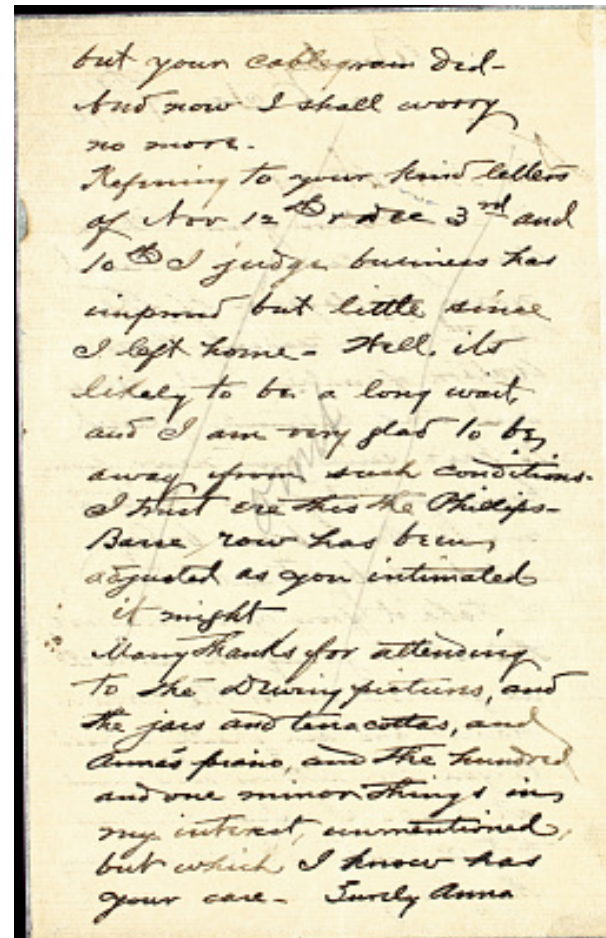 but your cablegram did-
And now I shall worry
no more.
Referring to your kind letters
of Nov 12th & Dec 3rd and
10th I judge business has
improved but little since
I left home - Well, its
likely to be a long wait,
and I am very glad to be
away from such conditions.
I trust ere this the Phillips-
Barse row has been
adjusted as you intimated
it might
Many thanks for attending
to the Dewing pictures, and
the jars and terracottas, and
Anna's piano, and the hundred
and one minor things in
my interest, unmentioned,
but which I know has
your care - Surely Anna
omit